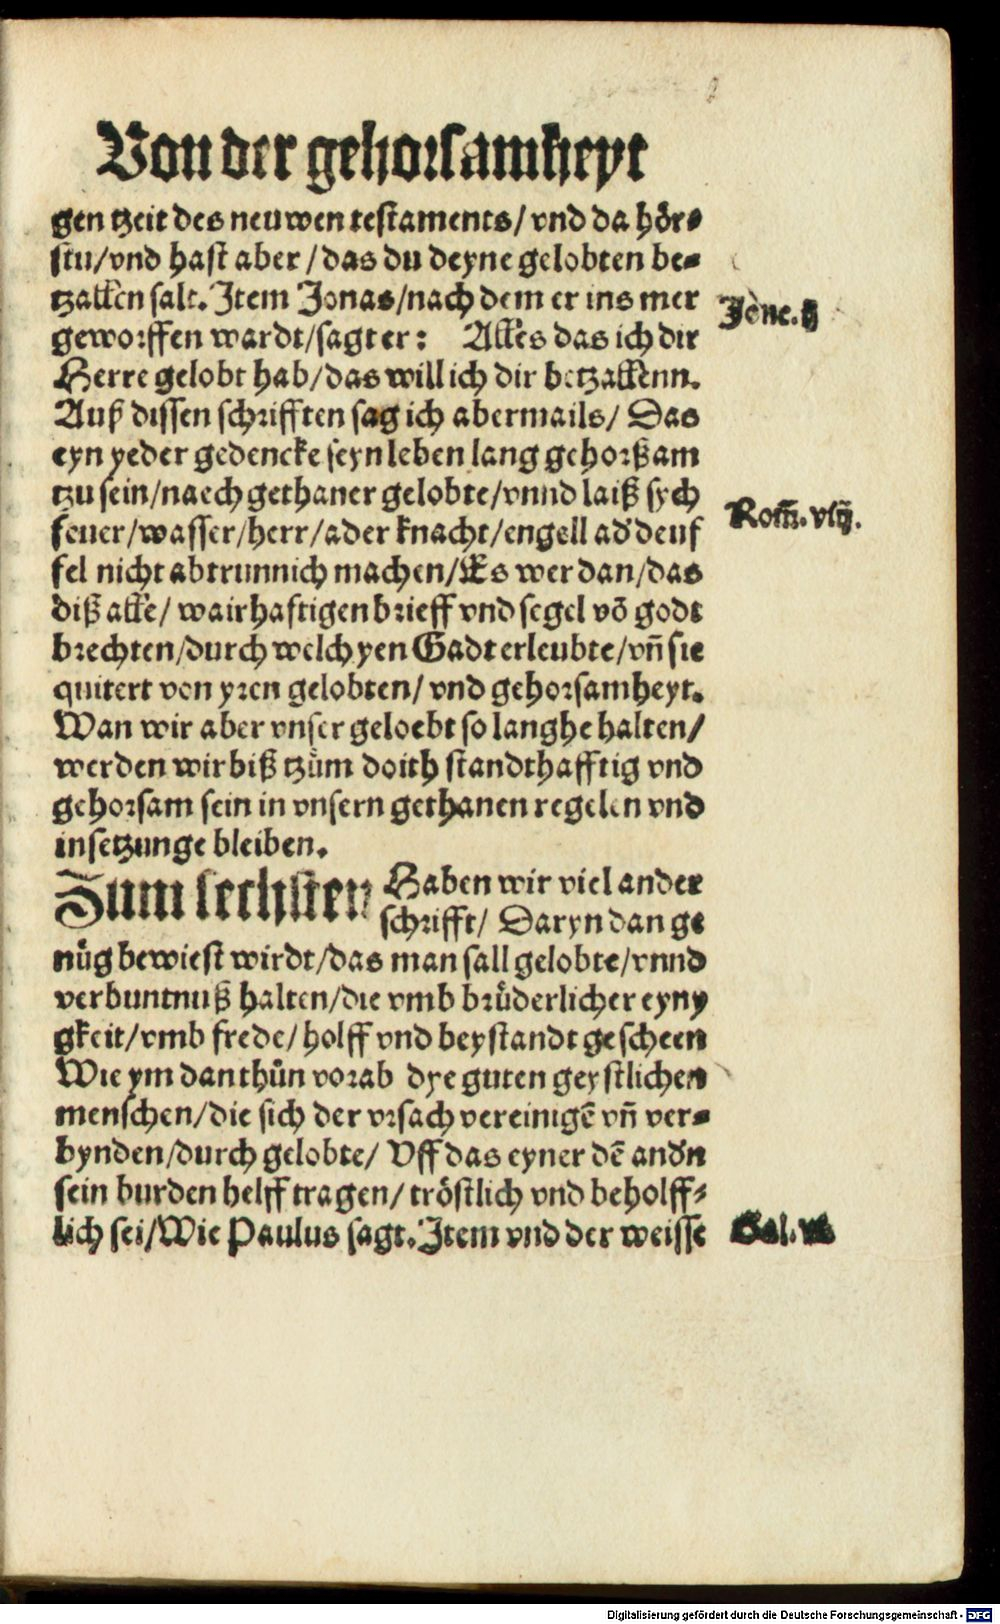 Von der gehorsamheyt
gen tzeit des neuwen testaments/ vnd da hör⸗
stu/vnd hast aber/das du deyne gelobten be⸗
tzallen salt. Item Jonas/nach dem er ins mer
Jone. ij
geworffen wardt/sagt er: Alles das ich dir
Herre gelobt hab/das will ich dir betzallenn.
Auß dissen schrifften sag ich abermails/ Das
eyn yeder gedencke seyn leben lang gehorßam
tzu sein/naech gethaner gelobte/vnnd laiß sych
Rom̄. viij.
feuer/wasser/herr/ader knacht/engell ad̕ deuf
fel nicht abtrunnich machen/Es wer dan/das
diß alle/ wairhaftigen brieff vnd segel võ godt
brechten/durch welch yen Gadt erleubte/vñ sie
quitert von yren gelobten/ vnd gehorsamheyt.
Wan wir aber vnser geloebt so langhe halten/
werden wir biß tzům doith standthafftig vnd
gehorsam sein in vnsern gethanen regelen vnd
insetzunge bleiben.
Zum sechsten Haben wir viel ander
schrifft/ Daryn dan ge
nůg bewiest wirdt/das man sall gelobte/vnnd
verbuntnuß halten/die vmb brůderlicher eyny
gkeit/vmb frede/holff vnd beystandt gescheen
Wie ym dan thůn vorab dye guten geystlichen
menschen/die sich der vrsach vereinigẽ vñ ver⸗
bynden/durch gelobte/ Vff das eyner dẽ and̕n
sein burden helff tragen/ tröstlich vnd beholff⸗
lich sei/Wie Paulus sagt. Item vnd der weisse
Gal. vi
Digitalisierung gefördert durch die Deutsche Forschungsgemeinschaft - DFG